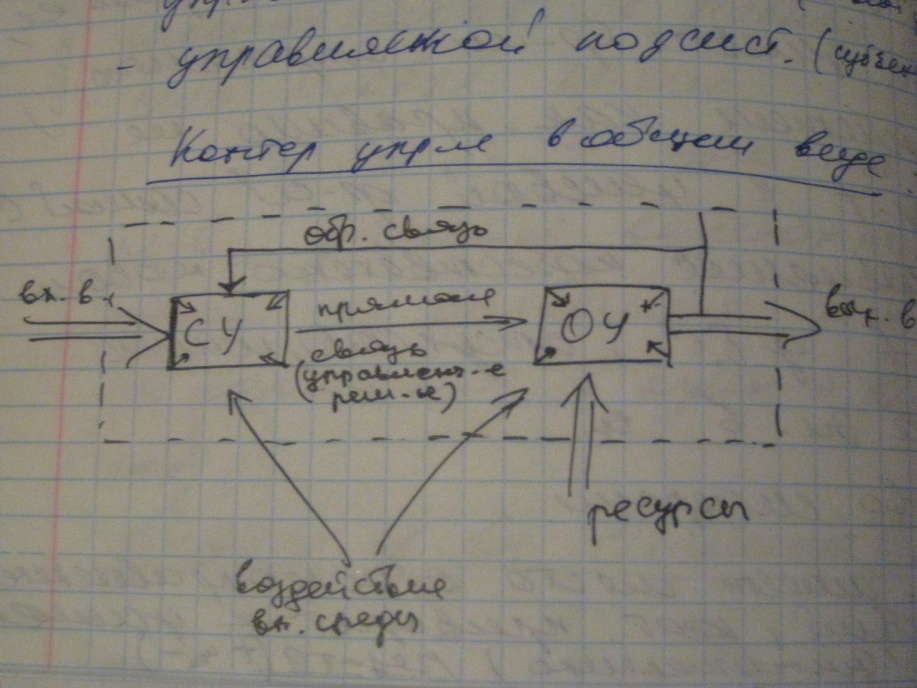 - управляемой подсист. (субъек
Контур упр-я в общем виде
обр. связь
вх. в.
СУ
прямая
связь
(управленч-е
реш-я)
ОУ
вых. в
ресурсы
воздействие
вн. среды